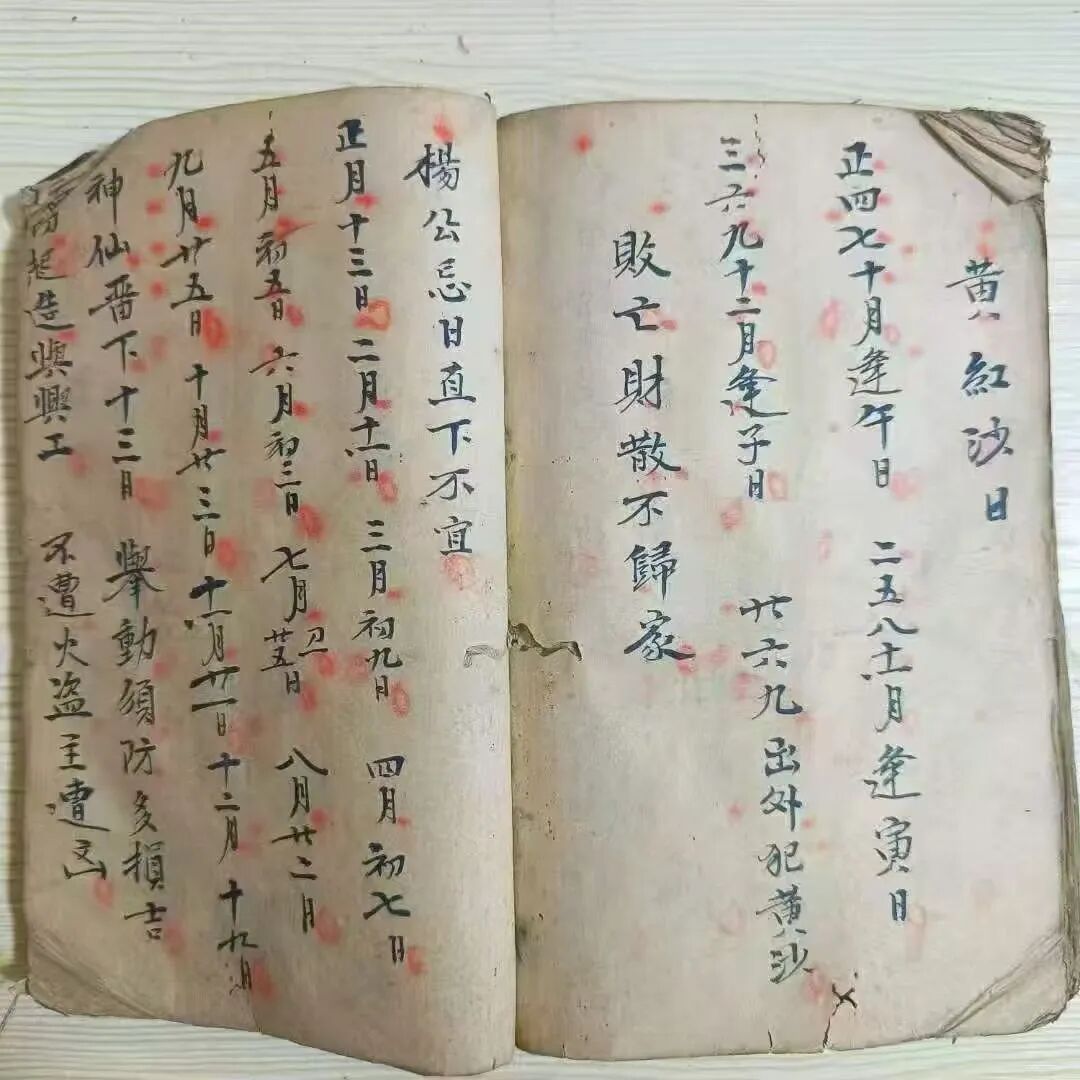 黄紅沙日
正四七十月逢午日 二五八十一月逢寅日
三六九十二月逢子日 廿六九出外犯黄沙
敗亡財散不歸家
楊公忌日直下不宜
正月十三日 二月十一日 三月初九日 四月初七日
五月初五日 六月初三日 七月初一廿五日 八月廿二日
九月廿五日 十月廿三日 十一月廿一日 十二月十九日
神仙畨下十三日 舉動須防多損吉
起造與興工 不遭火盗主遭凶